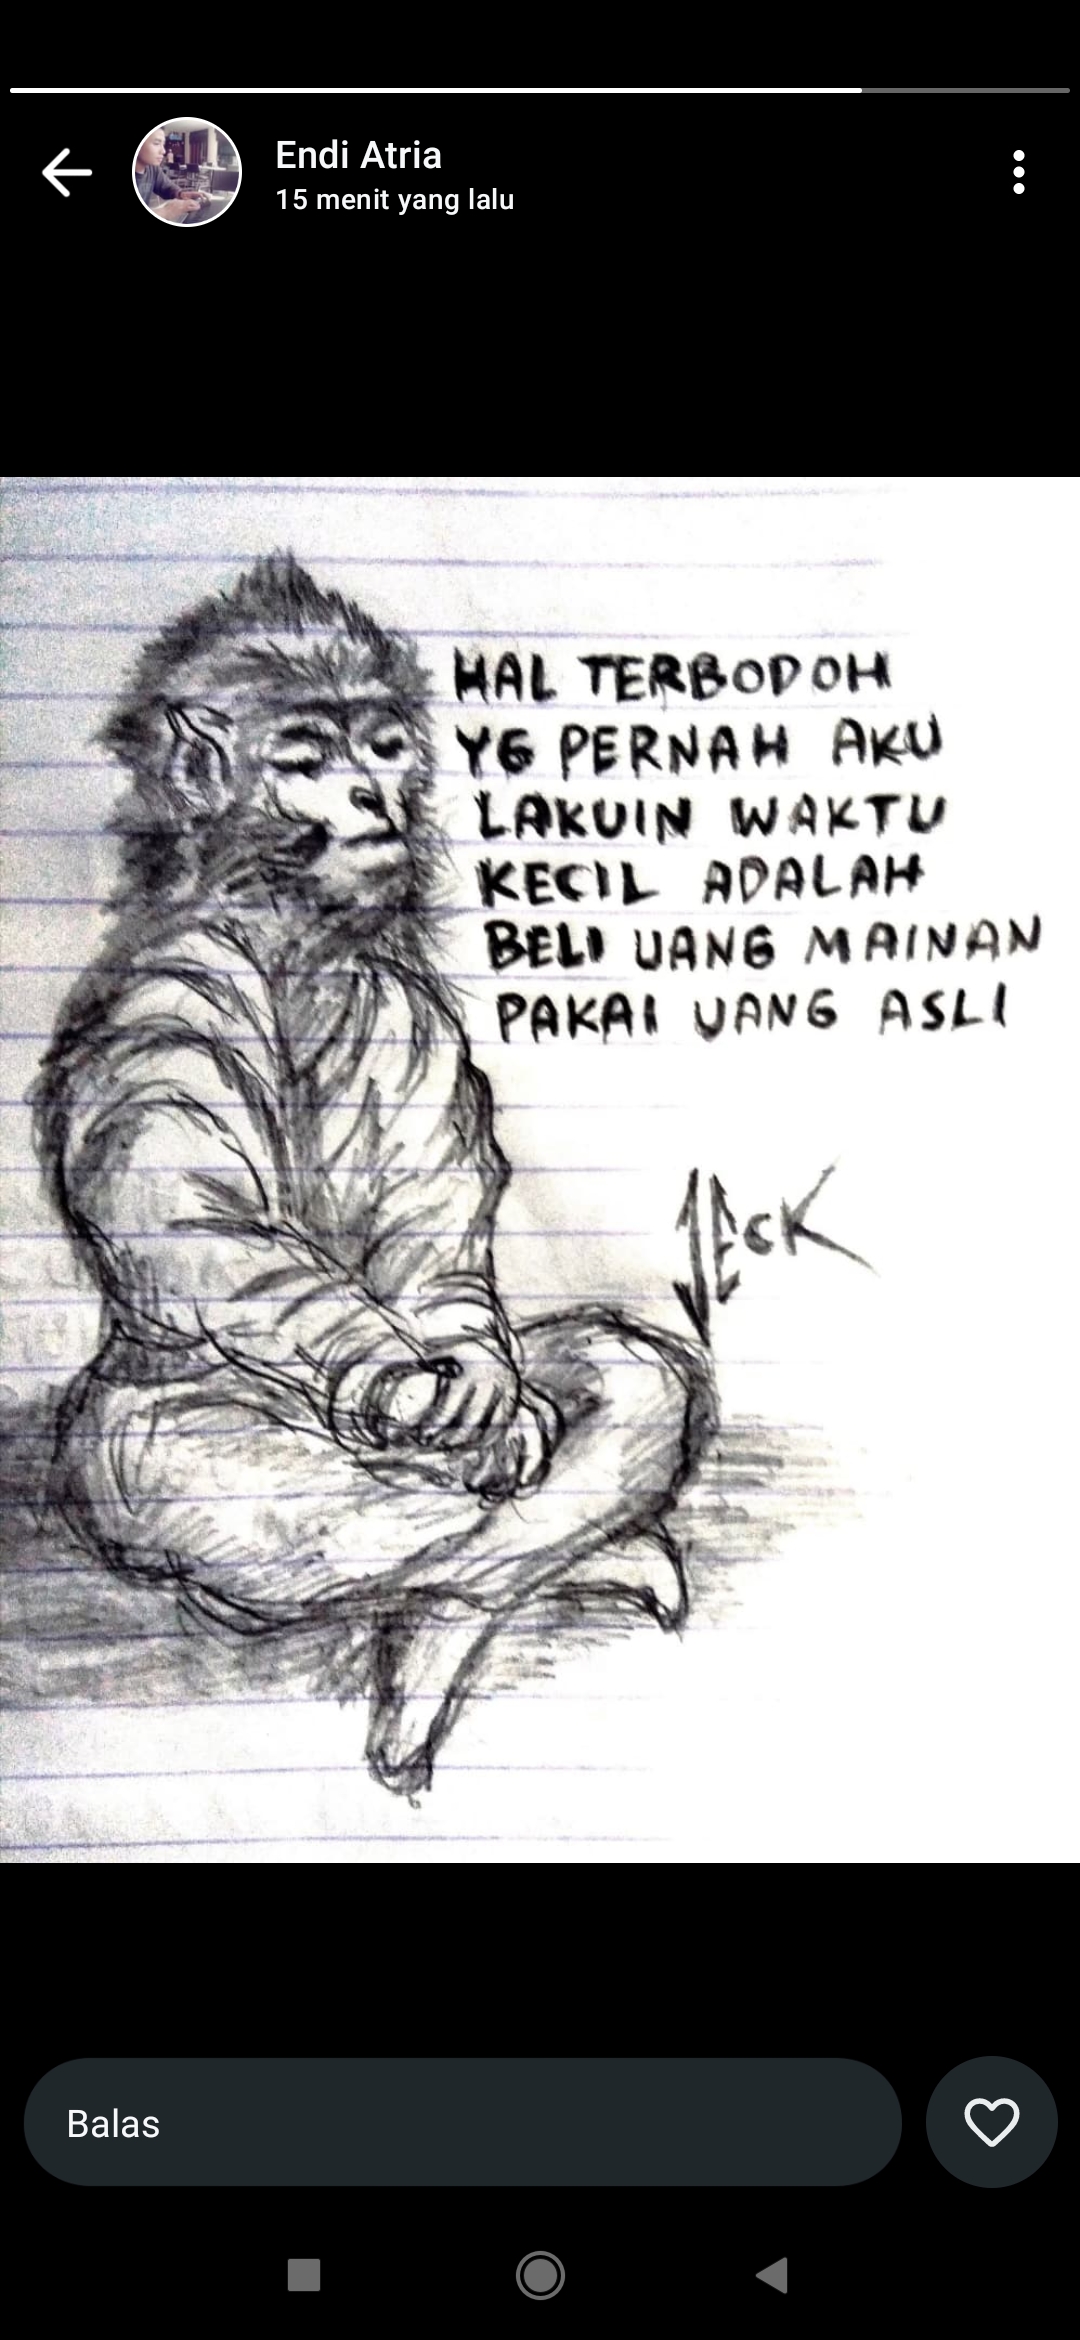 Endi Atria
15 menit yang lalu
HAL TERBODOH
YG PERNAH AKU
LAKUIN WAKTU
KECIL ADALAH
BELI UANG MAINAN
PAKAI UANG ASLI
JECK
Balas